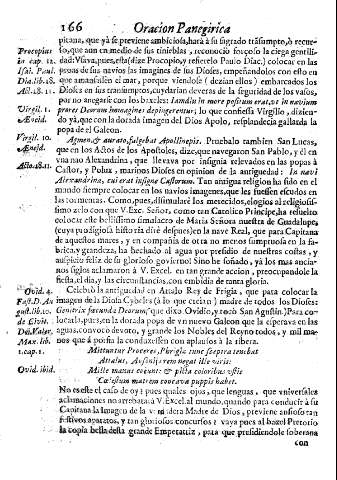 166 Oracion Panegirica
pitana, que yà se previene ambiciosa, harà à su sagrado trasumpto, à recuer-
so, que aun en medio de sus tinieblas, reconociò forçoso la ciega gentili-
dad: Vsava, pues, esta (dize Procopio, y refierelo Paulo Diac.) colocar en las
proas de sus navios las imagines de sus Dioses, empeñandolos con esto en
que amansassen el mar, porque viendose (dezian ellos) embarcados los
Dioses en sus traniumpros, cuydarian deveras de la seguridad de los vasos,
por no anegarse con los baxeles: Iandiu in more positum erat, vt in navium
prares Deorum imagines depingerentur; lo que confiessa Virgilio, dizien-
do yà, que con la dorada imagen del Dios Apolo, resplandecia gallarda la
popa de el Galeon.
Agmen, & aurato, fulgebat Apolline puppis. Pruebalo tambien San Lucas,
que en los Actos de los Apostoles, dize, que navegaron San Pablo, y èl en
vna nao Alexandrina, que llevava por insignia relevados en las popas à
Castor, y Polux, marinos Dioses en opinion de la antiguedad: In navi
Alexandrina, cui erat insigne Castorum. Tan antigua religion ha sido en el
mundo siempre colocar en los navios imagenes, que les fuessen escudos en
las tormentas. Como, pues, dissimularè los merecidos, elogios al religiosis-
simo zelo con que V. Exc. Señor, como tan Catolico Principe, ha resuelto
colocar este bellissimo simulacro de Maria Señora nuestra de Guadalupe,
(cuya prodigiosa historia dirè despues) en la nave Real, que para Capitana
de aquestos mares, y en compañia de otra no menos sumptuosa en la fa-
brica, y grandeza, ha hechado al agua por presidio de nuestras costas, y
auspicio feliz de su glorioso govierno! Sino he soñado, yà los mas ancia-
nos siglos aclamaron à V. Excel. en tan grande accion, preocupandole la
fiesta, el dia, y las circunstancias, con embidia de tanta gloria.
Celebrò la antiguedad en Atulo Rey de Frigia, que para colocar la
imagen de la Diosa Cybeles (à lo que creian) madre de todos los Dioses:
Genetrix fœcunda Deorum, que dixo Ovidio, y tocò San Agustin) Para co-
locarla, pues, en la dorada popa de vn nuevo Galeon que la esperava en las
aguas, convocò devoto, y grande los Nobles del Reyno todos, y mil ma-
nos que à porfia la conduxessen con aplausos à la ribera.
Mittuntur Proceres, Phrigia tunc sceptra tenebat
Attalus, Ausonijs rem negat ille viris:
Mille manus coeunt: & picta coloribus vstis
Cœlestum matrem concava puppis habet.
No es este el caso de oy? pues quales ojos, que lenguas, que vniversales
aclamaciones no arrebatarà V. Excel. al mundo, quando para conducir à su
Capitana la Imagen de la verdadera Madre de Dios, previene ansioso tan
festivos aparatos, y tan gloriosos concursos? vaya pues al baxel Pretorio
la copia bella desta grande Emperatriz, para que presidiendole soberana
con
Procopius
in cap. 12.
Isai. Paul.
Dia. lib. 18.
Act. 18. 11.
Virgil. 1.
Æneid.
Virgil. 10.
Æneid.
Acto. 28. 11.
Ovid. 4.
Fast. D. Au
gust. lib. 10.
de Civit.
Dei. Valer.
Max. lib.
1. cap. 1.
Ovid. ibid.